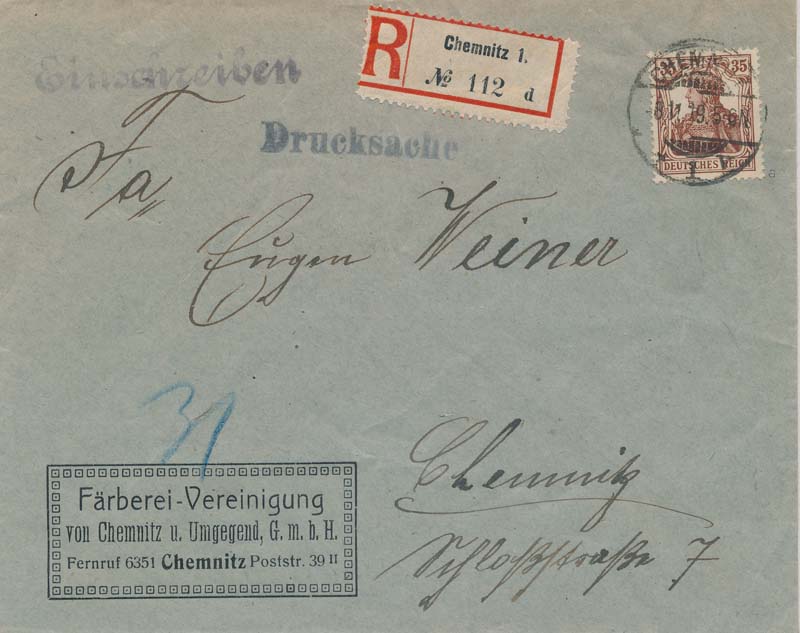 Einschreiben
R
Chemnitz 1.
№ 112 d
35 35
CHEMN
8.11.19. 5-6N
1
DEUTSCHES REICH
a
Drucksache
Fa
Eugen Weiner
31
Chemnitz
Schloßstraße 7
Färberei-Vereinigung
von Chemnitz u. Umgegend, G. m. b. H.
Fernruf 6351 Chemnitz Poststr. 39 II